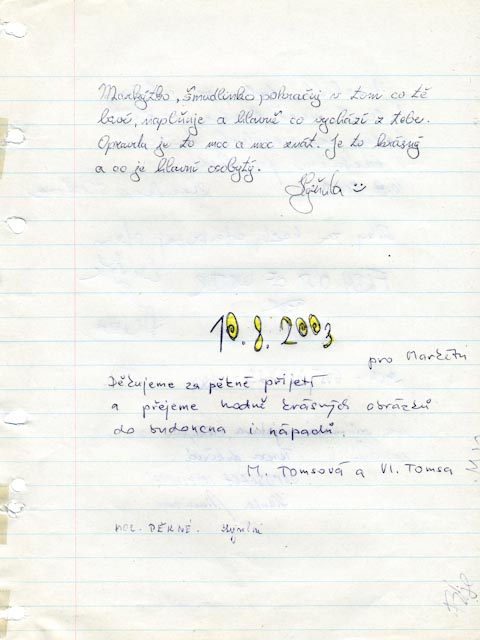 Markýzko, šmudlinko pokračuj v tom co tě
baví, naplňuje a hlavně co vychází z tebe.
Opravdu je to moc a moc znát. Je to krásný
a co je hlavní osobytý.
10.8.2003
pro Markétu
Děkujeme za pěkné přijetí
a přejeme hodně krásných obrázků
do budoucna i nápadů.
M. Tomsová a Vl. Tomsa
MOC PĚKNÉ.